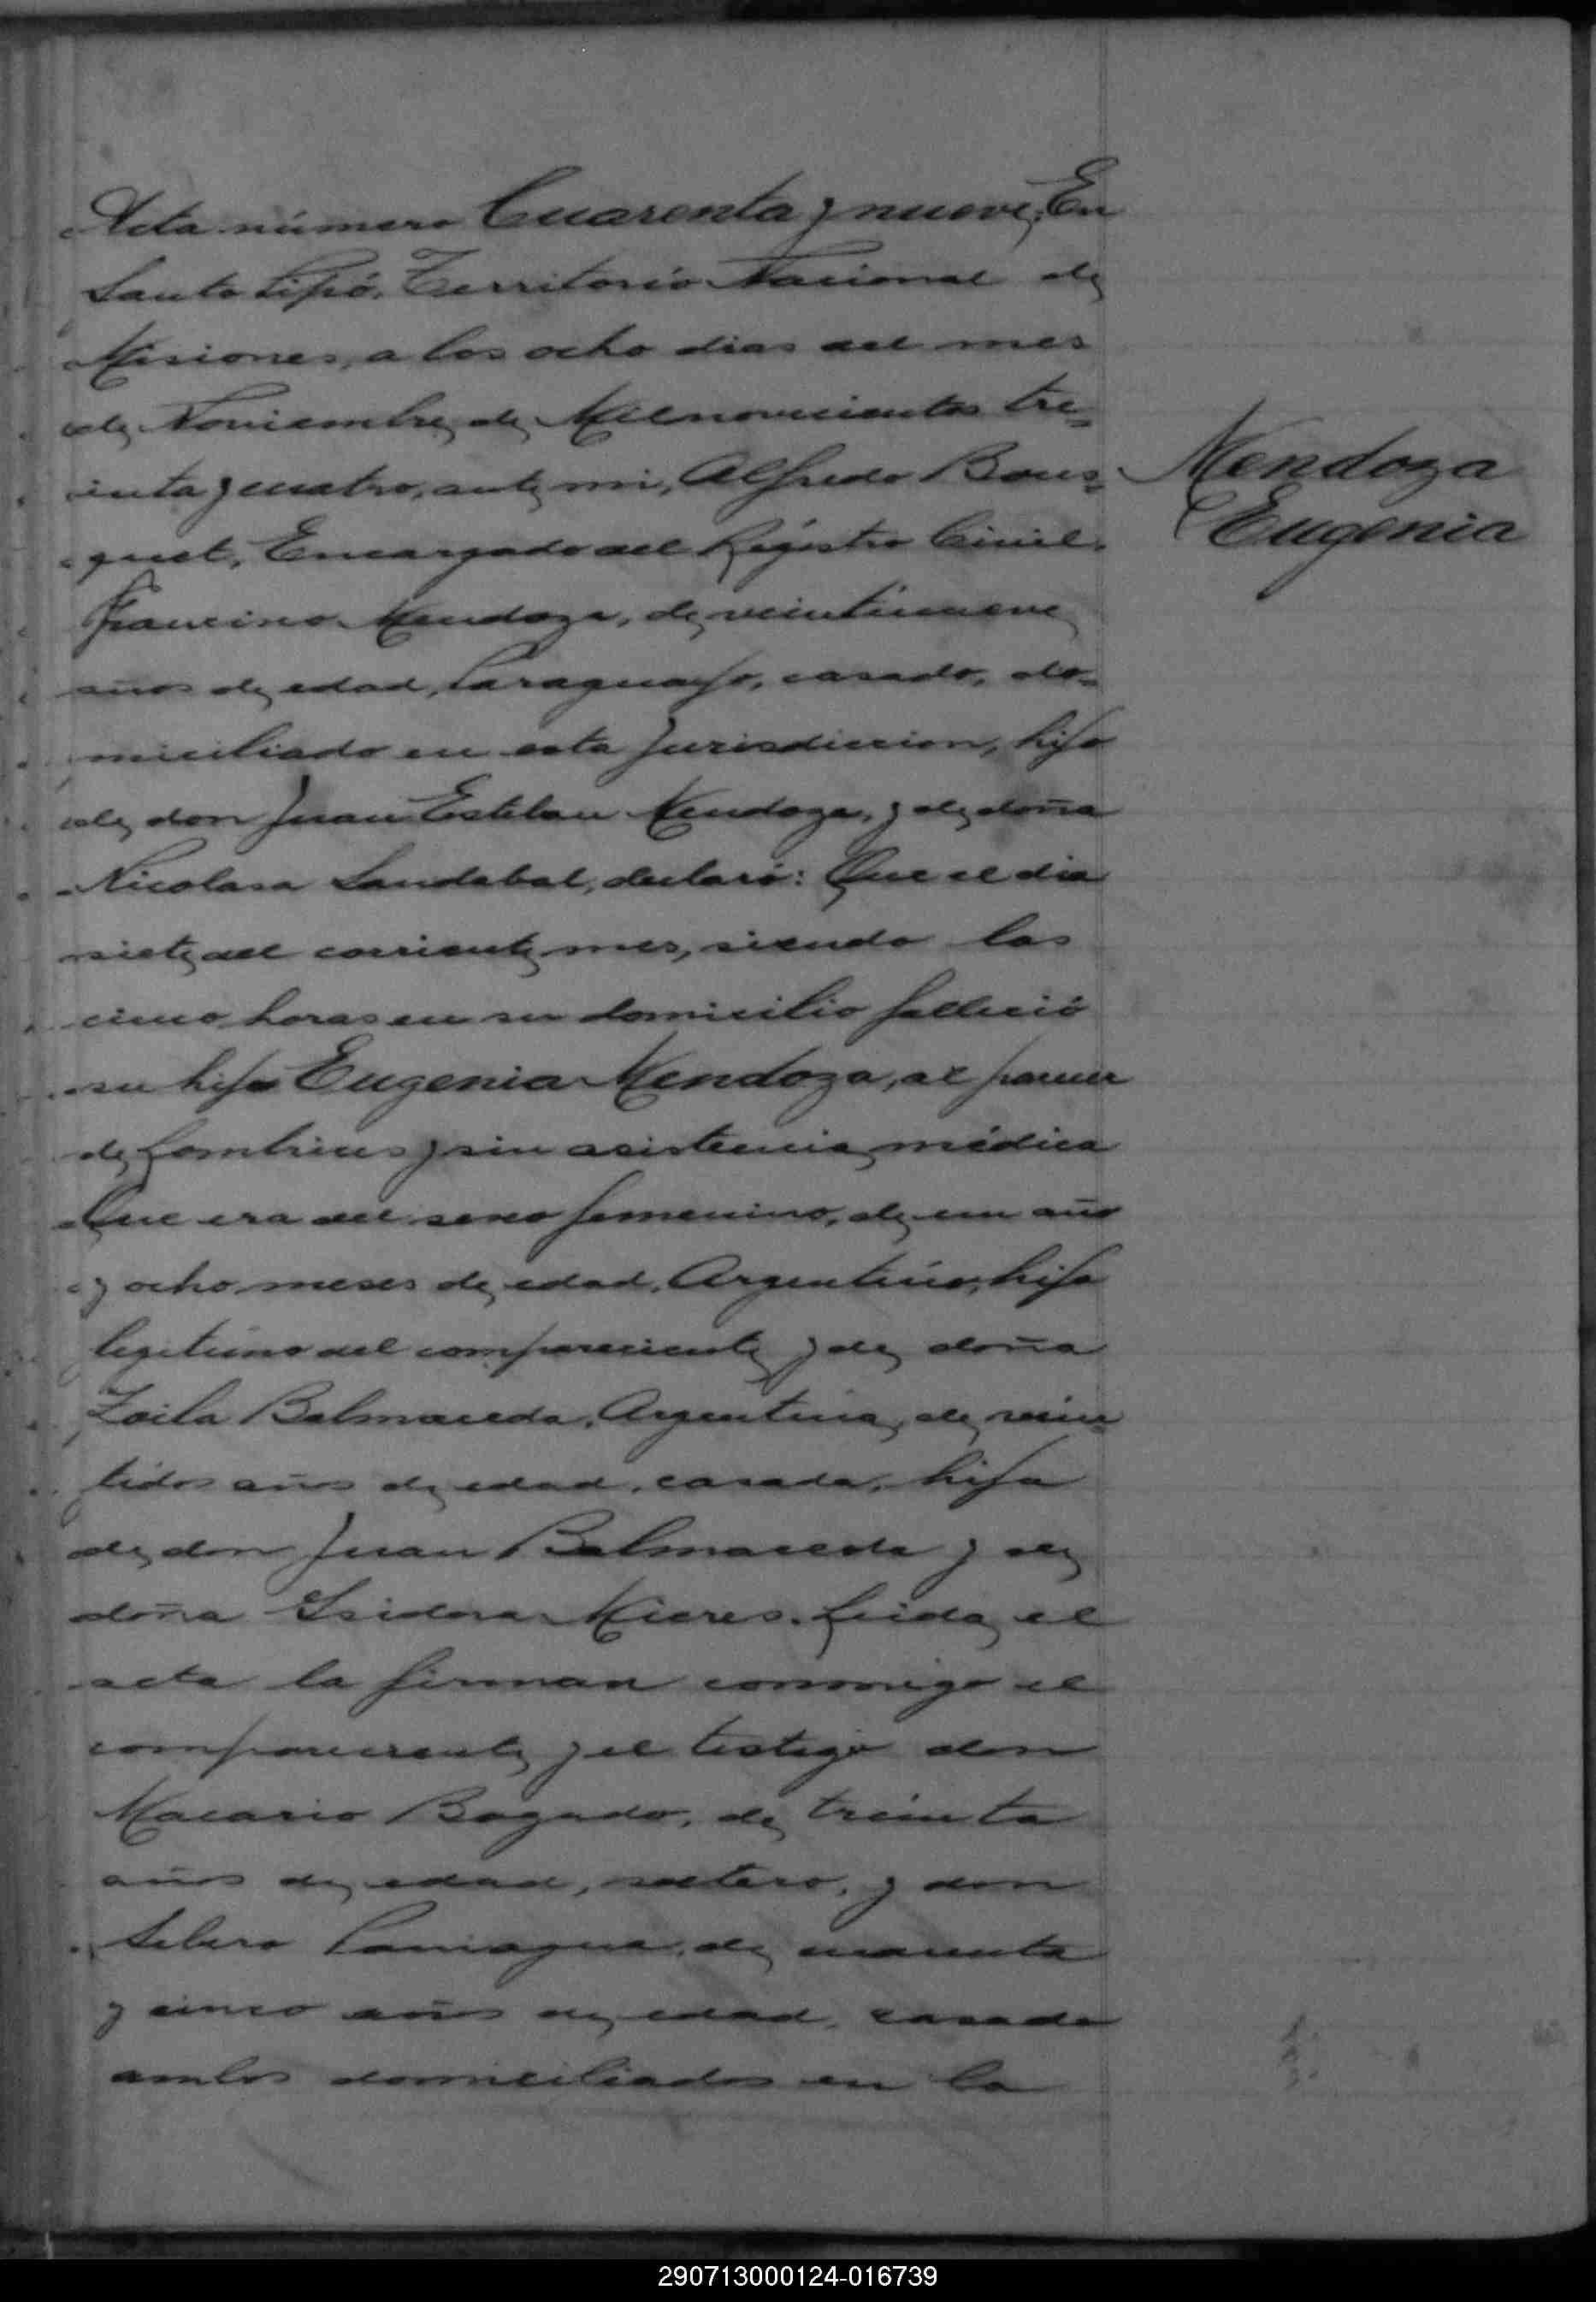 Acta número Cuarenta y nueve. En
Santo Pipó, Territorio Nacional de
Misiones, a los ocho dias del mes
de Noviembre de Milnovecientos tre=
inta y cuatro, ante mi, Alfredo Bous=
quet, Encargado del Registro Civil.
Francisco Mendoza, de veintinueve
años de edad, Paraguayo, casado, do=
miciliado en esta Jurisdiccion, hijo
de don Juan Esteban Mendoza, y de doña
Nicolasa Sandabal, declaró: Que el dia
siete del corriente mes, siendo las
cinco horas en su domicilio falleció
su hija Eugenia Mendoza, al parecer
de lombrices y sin asistencia médica
Que era del sexo femenino, de un año
y ocho meses de edad, Argentina, hija
legitimo del compareciente y de doña
Zoila Balmaceda, Argentina, de vein=
tidos años de edad, casada, hija
de don Juan Balmaceda y de
doña Isidora Mieres. Leida el
acta la firman conmigo el
compareciente y el testigo don
Macario Bogado, de treinta
años de edad, soltero, y don
Paniagua, de cuarenta
y cinco años de edad, casado
ambos domiciliados en la
Mendoza
Eugenia
290713000124-016739